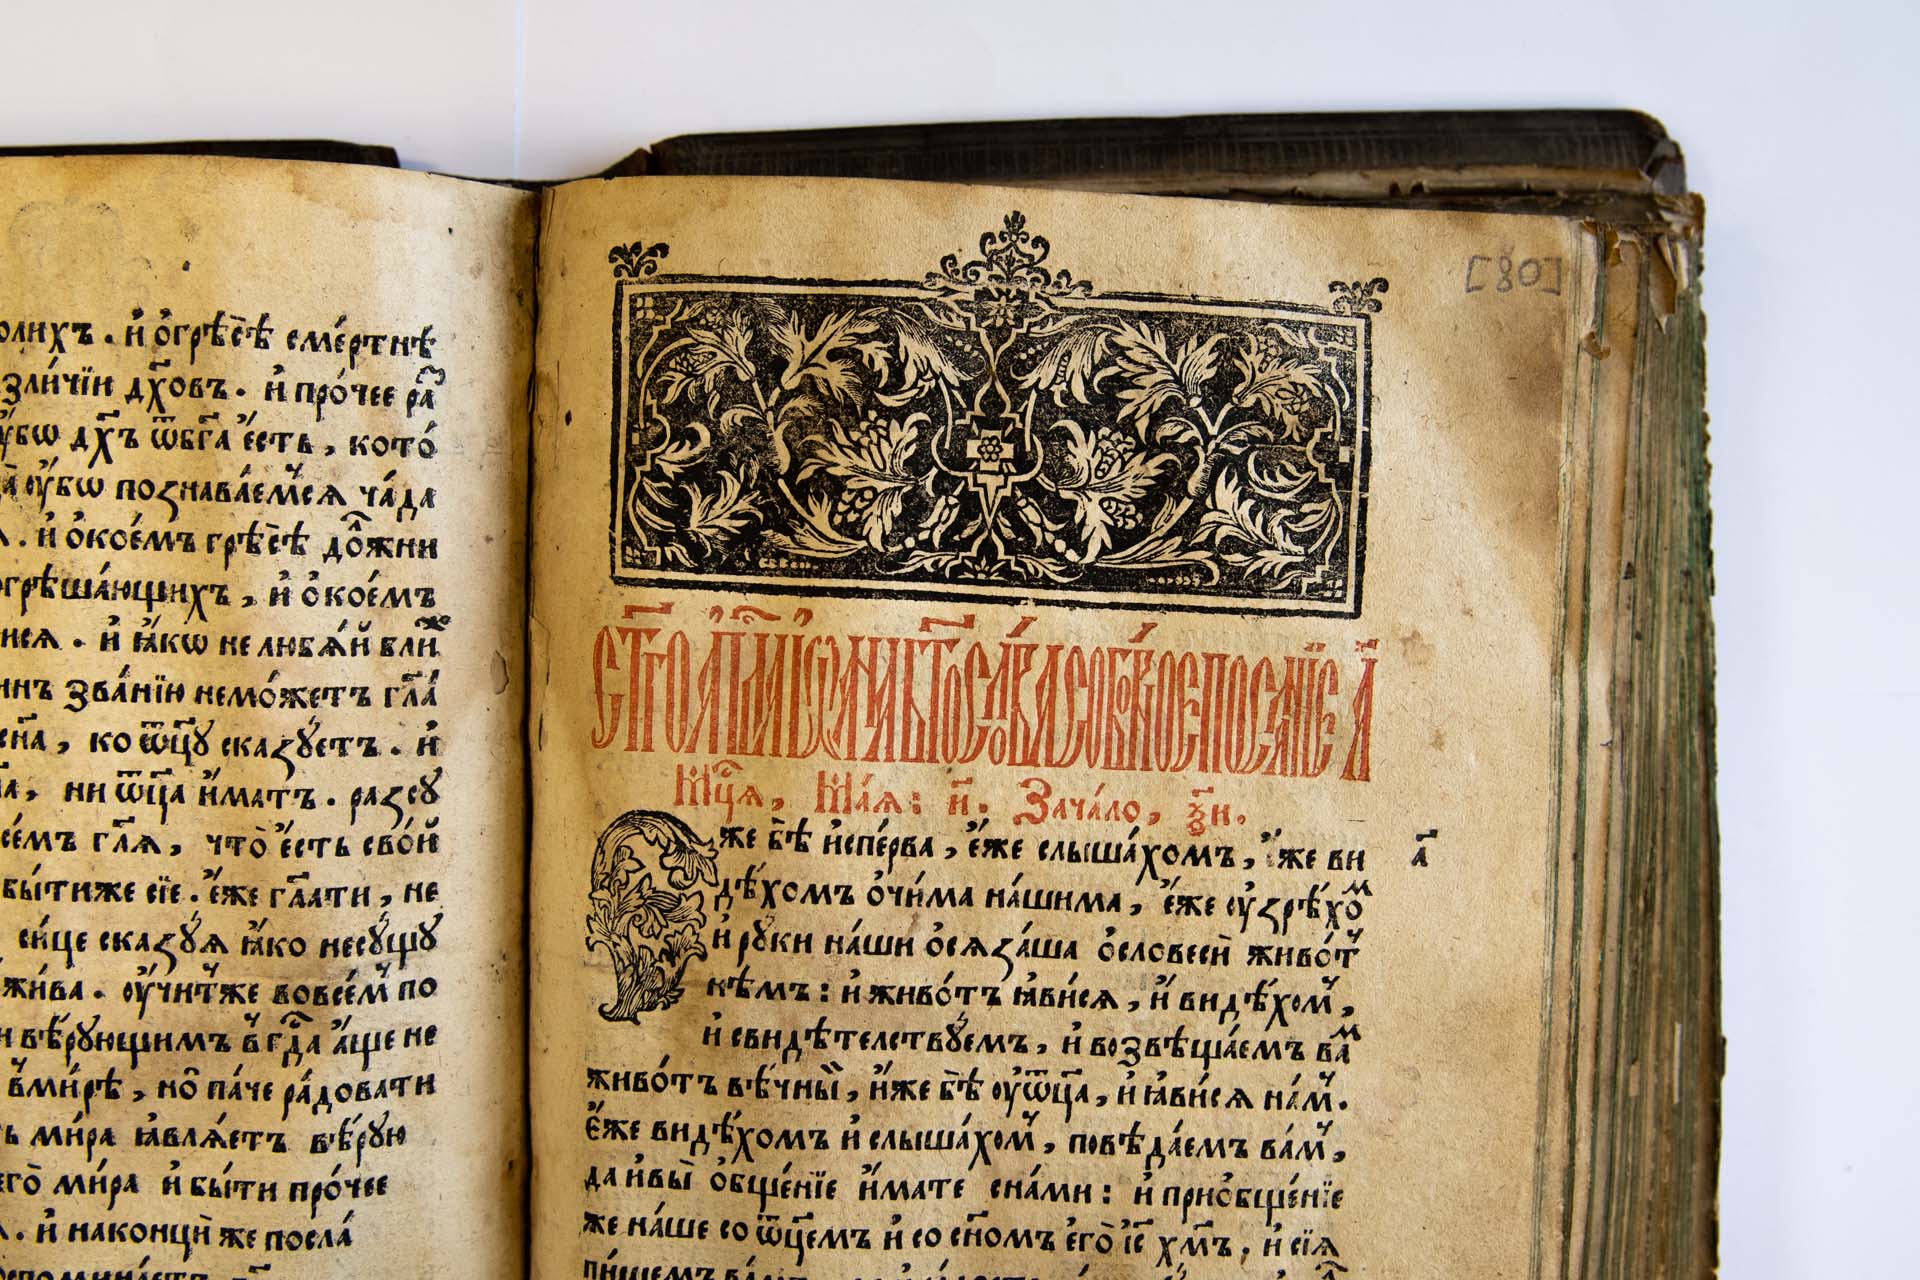 олихъ. и҆ о҆грѣ́сѣ сме́ртнѣ
зли́чїи дх҃овъ. и҆ про́чее ра
ᲂу҆́бѡ дх҃ъ ѿбг҃а є҆́сть, кото́
ᲂу҆́бѡ познава́емсѧ ча́да
и҆ о҆кое́мъ грѣ́сѣ до́лжни
огрѣша́ющихъ, и҆ о҆кое́мъ
исѧ. и҆ ꙗ҆́кѡ не любѧ́й бли
инъ зва́нїю немо́жетъ гл҃а
сн҃а, ко ѿц҃ꙋ сказꙋ́етъ. и҆
на, ни ѿц҃а и҆́мать. разсꙋ
се́мъ гл҃ѧ, что̀ є҆́сть сво́й
бы́тиже сїе. є҆́же гл҃ати, не
си́це сказꙋ́ѧ ꙗ҆́ко несꙋ́щꙋ
жи́ва. ᲂу҆чи́тже вовсе́м по
и вѣ́рꙋющимъ в҆ гд҃а а҆́ще не
в҆ми́рѣ, но̀ па́че ра́довати
ь ми́ра ꙗ҆влѧ́етъ вѣ́рꙋю
его̀ ми́ра и҆ бы́ти про́чее
и҆ наконцы̀ же посла́
[80]
ст҃гоап҃лаіѡаннабг҃ословасоборноепосланіе а҃
Мц҃сѧ, Ма́ѧ: и҃. Зача́ло, ѯ҃и.
Єже бѣ̀ и҆спе́рва, є҆́же слыша́хомъ, и҆́же ви
а҃
дѣ́хомъ о҆чи́ма на́шима, є҆́же ᲂу҆зрѣ́хом
и҆ рꙋки на́ши ѻ҆сѧза́ша ѻ҆словесѝ живо́т
нѣмъ: и҆ живо́тъ ꙗ҆ви́сѧ, и҆ видѣ́хом,
и҆ свидѣ́телствꙋемъ, и҆ возвѣща́емъ ва́м
живо́тъ вѣ́чный, и҆́же бѣ̀ ᲂу҆ѿц҃а, и҆ ꙗ҆ви́сѧ на́м.
є҆́же видѣ́хомъ и҆ слыша́хом, повѣда́емъ ва́м,
да и҆вы̀ о҆бще́нїе и҆́мате сна́ми: и҆ прио҆бще́нїе
же на́ше со ѿц҃емъ и҆ со сн҃омъ є҆го̀ і҆с҃ х҃мъ, и҆ сїѧ
пи́шемъ ва́мъ